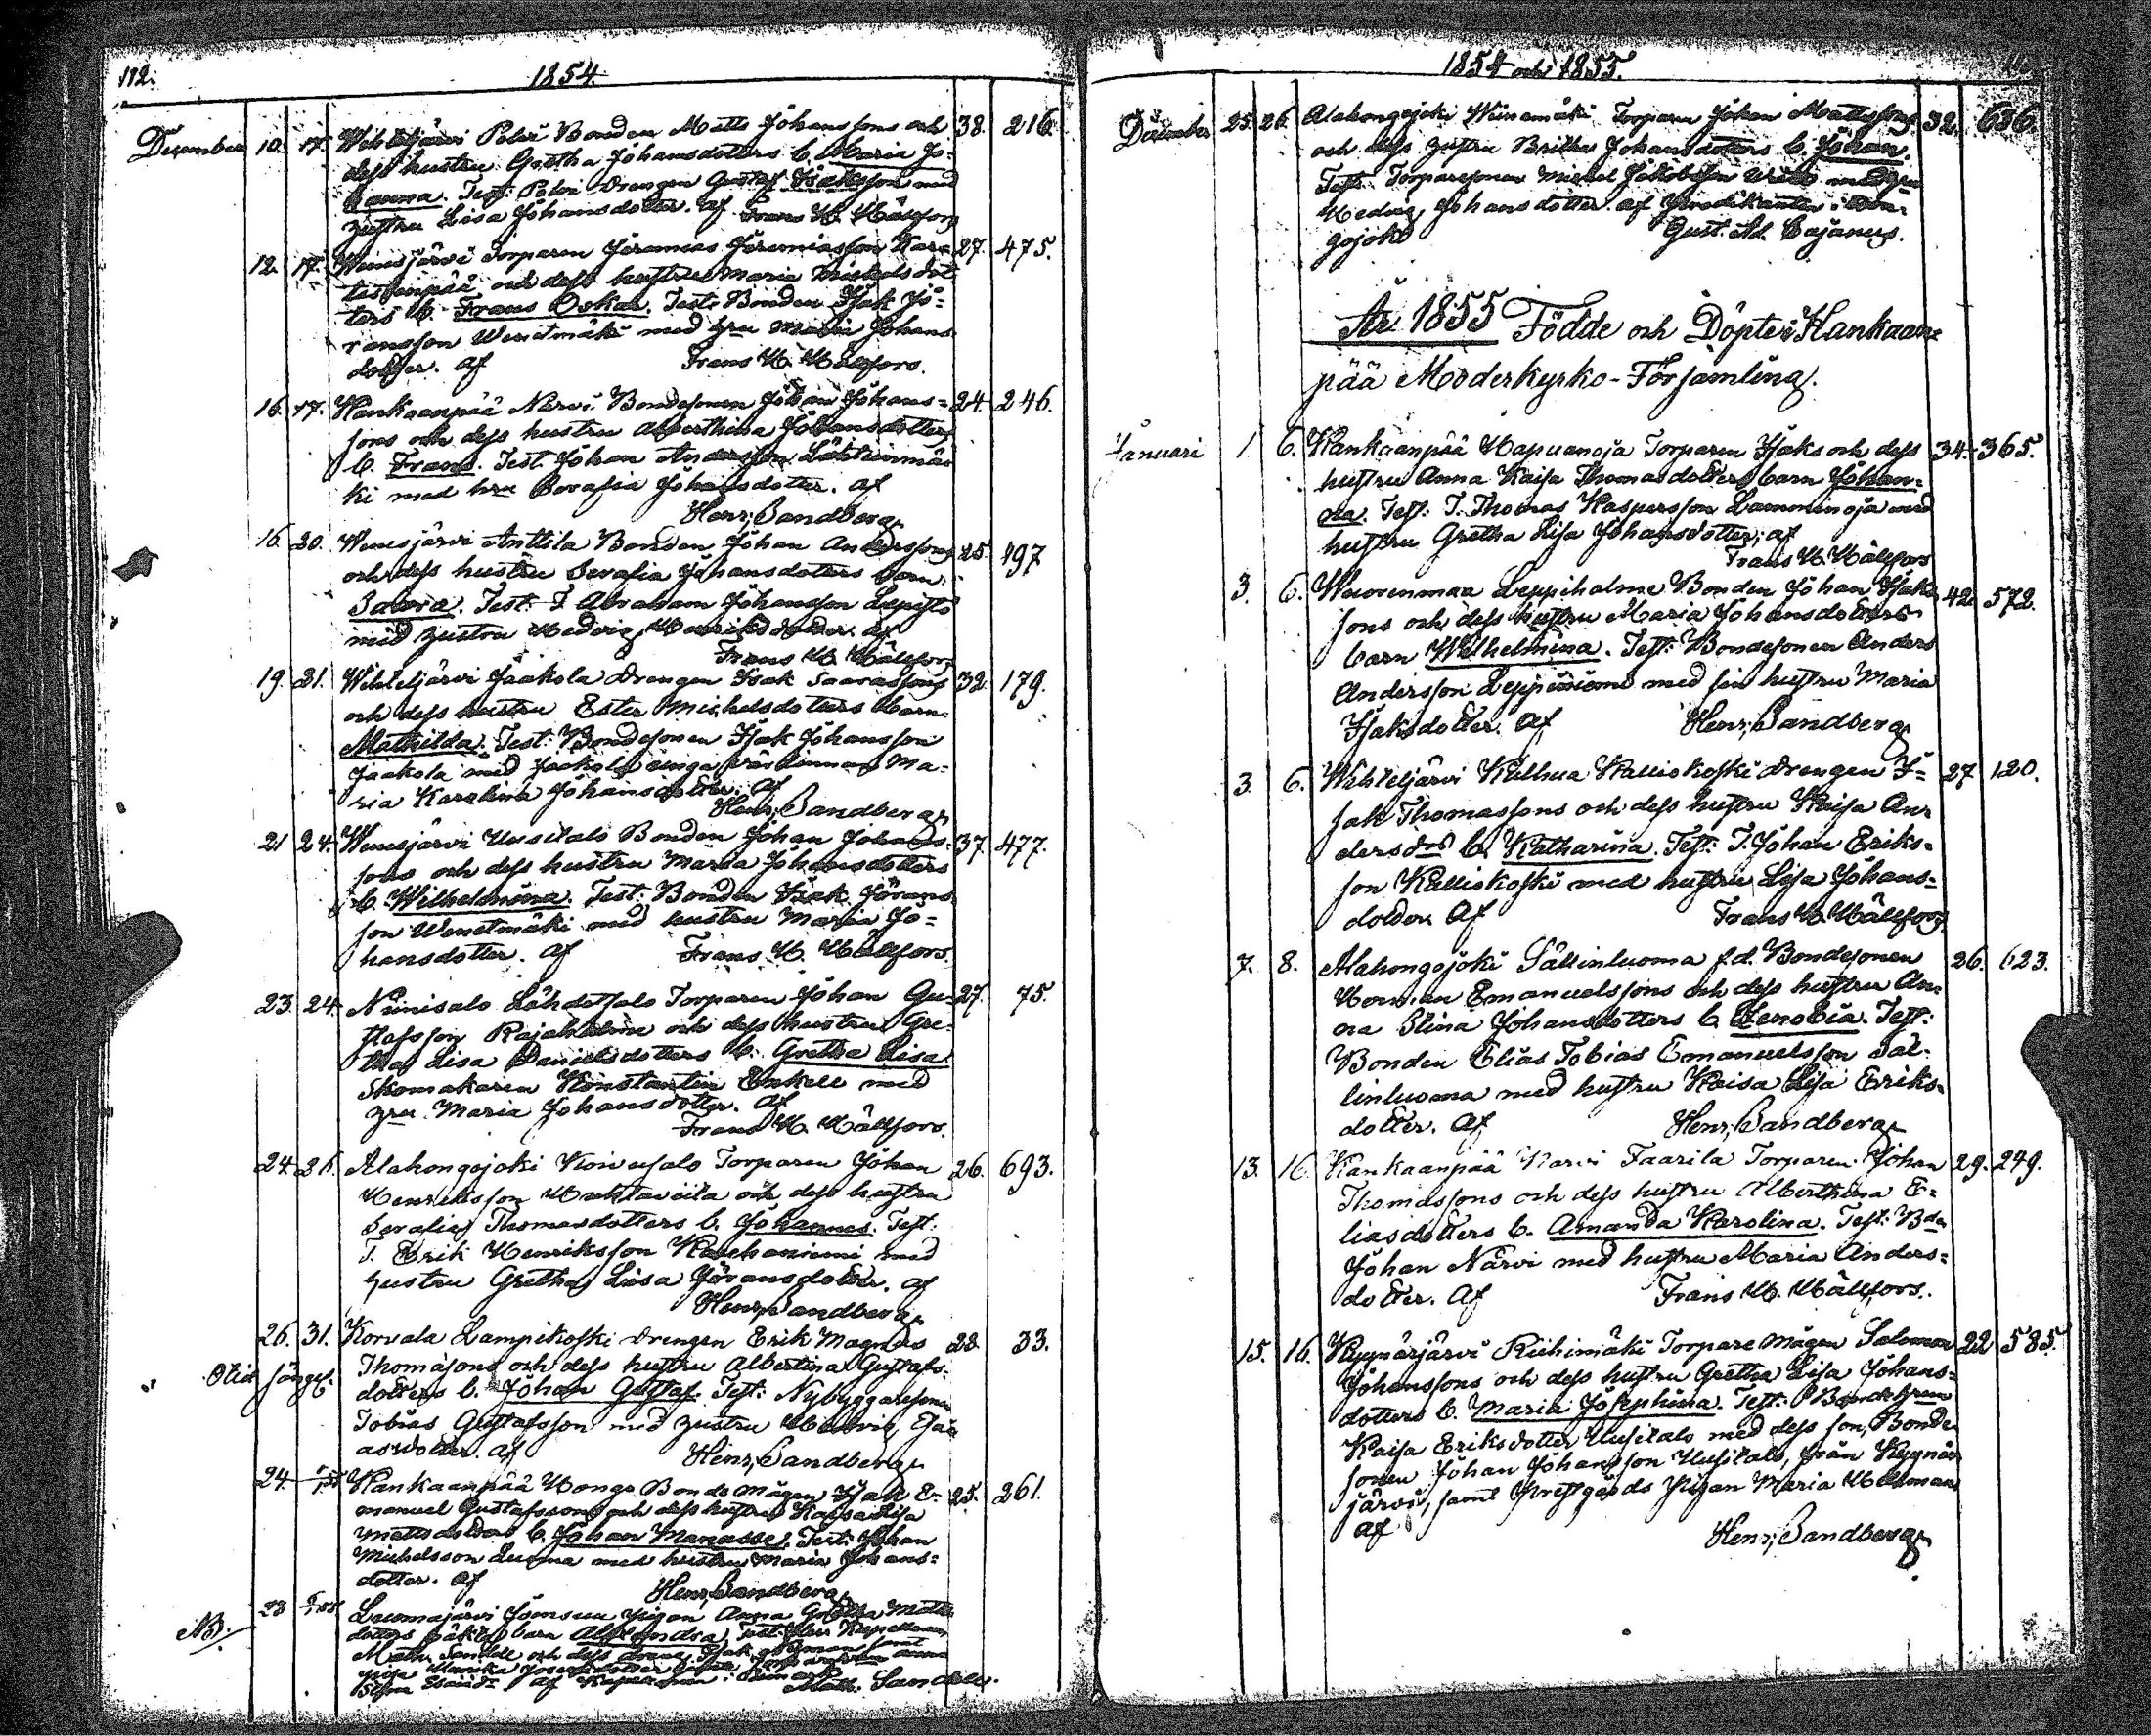 112.
1854.
December 10. 17. Wihteljärvi Bonden Matts Johanssons och 38. 216.
dess hustru Gretha Johansdotters b. Maria Jo-
hanna. Test: Drengen Gustaf Isaksson med
hustru Lisa Johansdotter. af Frans H. Hällfors
12. 17. Wenesjärvi Torparen Jeremias Jeremiasson 27. 475.
och dess hustru Maria Michelsdot
ters b. Frans Oskar. Test: Bonden Isak Jö-
ransson Wenetmäki med hru Maria Johans
dotter. af Frans H. Hällfors.
16. 17. Kankaanpää Närvi Bondesonen Johan Johans- 24. 246.
sons och dess hustru Alberthina Johansdotters
b. Frans. Test. Johan Andersson
ki med hru Serafia Johansdotter. af
Henr; Sandberg
16. 20. Wenesjärvi Anttila Bonden Johan Anderssons 25. 197
och dess hustru Serafia Johansdotters barn
Test: T Abraham Johansson Lepistö
med hustru Hedvig Henriksdotter. af
Frans H. Hällfors
19. 21. Wihteljärvi Jaakola Drengen Isak 32. 179.
och dess hustru Ester Michelsdotters barn
Mathilda. Test: Bondesonen Isak Johansson
Jaakola med Jaakola värdinnan Ma-
ria Karolina Johansdotter. af
Henr; Sandberg
21 24. Wenesjärvi Uusitalo Bonden Johan Johans- 37. 477.
sons och dess hustru Maria Johansdotters
b. Wilhelmina. Test: Bonden Isak Jörans
son Wenetmäki med hustru Maria Jo-
hansdotter. af Frans H. Hällfors.
23. 24. Niinisalo Lähdetsalo Torparen Johan Gu- 27. 75.
stafsson Rajaholma och dess hustru Gre-
tha Lisa Danielsdotters b. Gretha Lisa
Skomakaren Konstantin Enkell med
hru Maria Johansdotter. af
Frans H. Hällfors.
24. 26. Alahongojoki Koivusalo Torparen Johan 26. 693.
Henriksson och dess hustru
Serafia Thomasdotters b. Johannes. Test:
T. Erik Henriksson med
hustru Gretha Lisa Jöransdotter. af
Henr; Sandberg
26. 31. Korvala Lampikoski Drengen Erik Magnus 28. 33.
Thomasons och dess hustru Albertina Gustafs-
dotters b. Johan Gustaf. Test: Nybyggaresonen
Tobias Gustafsson med hustru Hedvig Esai
asdotter. af Henr; Sandberg
24. Kankaanpää Hongo Bonde Mågen Isak E- 25. 261.
manuel Gustafssons och dess hustru Kaisa Lisa
Mattsdotters b. Johan Manasse. Test: Johan
Michelsson Luoma med hustru Maria Johans-
dotter. af
Henr; Sandberg
NB. 23 Luomajärvi Jöensuu Pigan Anna Gretha Matts
dotters oäkta barn Alexandra, Test: Herr Kapellanen
Math. Sandell och dess
af Kapellanen
Math. Sandell.
1854 och 1855.
December 25. 26. Alahongojoki Niinimäki Torparen Johan Mattssons 32. 636.
och dess hustru Britha Johansdotters b. Johan.
Test: Torparesonen Michel Jakobsson med hru
Hedvig Johansdotter. af Predikanten i Hon-
gojoki Gust. Ad. Cajanus.
År 1855 Födde och Döpte i Kankaan-
pää Moderkyrko-Församling.
Januari 1. 6. Kankaanpää Hapuanoja Torparen Isaks och dess 34. 365.
hustru Anna Kaisa Thomasdotters barn Johan-
na. Test: T. Thomas Kaspersson Lamminoja med
hustru Gretha Lisa Johansdotter, af
Frans H. Hällfors
3. 6. Wuorenmaa Leppiholme Bonden Johan Isaks 42. 572.
sons och dess hustru Maria Johansdotters
barn Wilhelmina. Test: Bondesonen Anders
Andersson Leppiniemi med sin hustru Maria
Isaksdotter. af Henr; Sandberg
3. 6. Wihteljärvi Kulhua Kalliokoski Drengen I- 27 120.
sak Thomassons och dess hustru Kaisa An-
dersdrs b. Katharina. Test: T. Johan Eriks-
son Kalliokoski med hustru Lisa Johans-
dotter. af Frans H. Hällfors
7. 8. Alahongojoki Sällinluoma f.d. Bondesonen 26. 623.
Herman Emanuelssons och dess hustru An-
na Stina Johansdotters b. Zenobia. Test:
Bonden Elias Tobias Emanuelsson Säl-
linluoma med hustru Kaisa Lisa Eriks-
dotter. af Henr; Sandberg
13. 16. Kankaanpää Närvi Faarila Torparen Johan 29. 249.
Thomassons och dess hustru Alberthina E-
liasdotters b. Amanda Karolina. Test: Bden
Johan Närvi med hustru Maria Anders-
dotter. af Frans H. Hällfors.
15. 16. Kyynärjärvi Riihimäki Torpare Mågen Salomon 22 585.
Johanssons och dess hustru Gretha Lisa Johans-
dotters b. Maria Josephina. Test: Bondehrun
Kaisa Eriksdotter Uusitalo med dess son, Bonde
sonen Johan Johansson Uusitalo, från Kyynär
järvi, samt Prestgårds Pigan Maria
af Henr; Sandberg